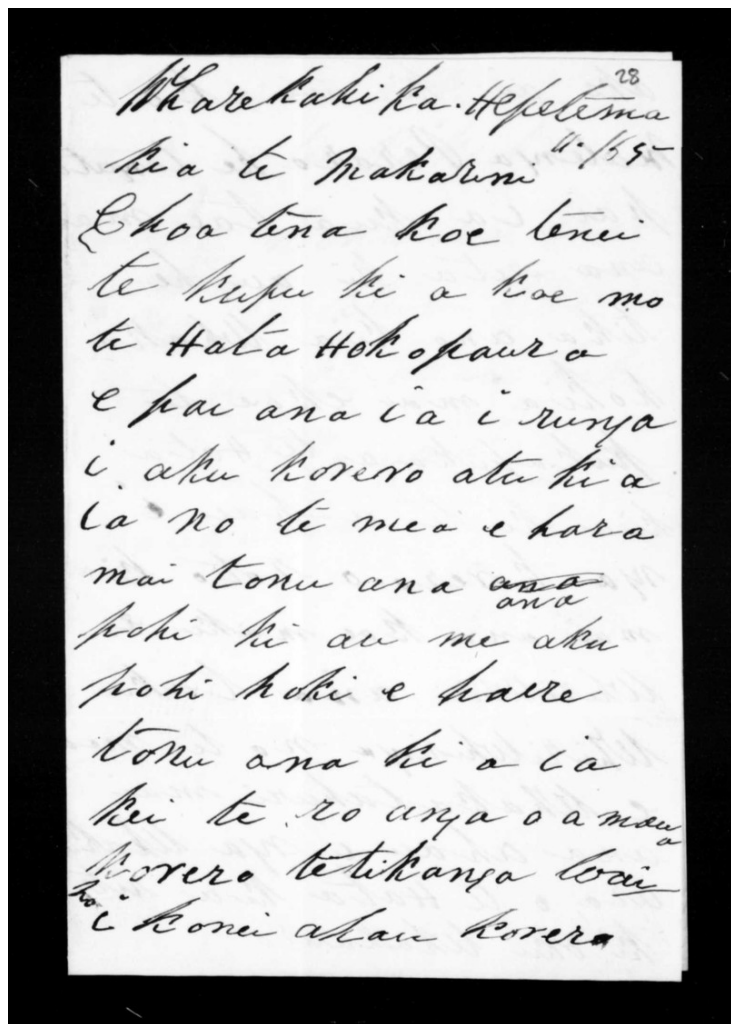 28
Wharekahika. Hepetema
11. / 95
kia te Makarini
E hoa tena koe tenei
te kupu ki a koe mo
te Hata Hokopaura
e pai ana ia i runga
i aku korero atu ki a
ia no te mea e hara
mai tonu ana ana
ana
pohi ki au me aku
pohi hoki e haere
tonu ana ki a ia
kei te roanga o a maua
korero te tikanga Wai
ho
i konei akau korero